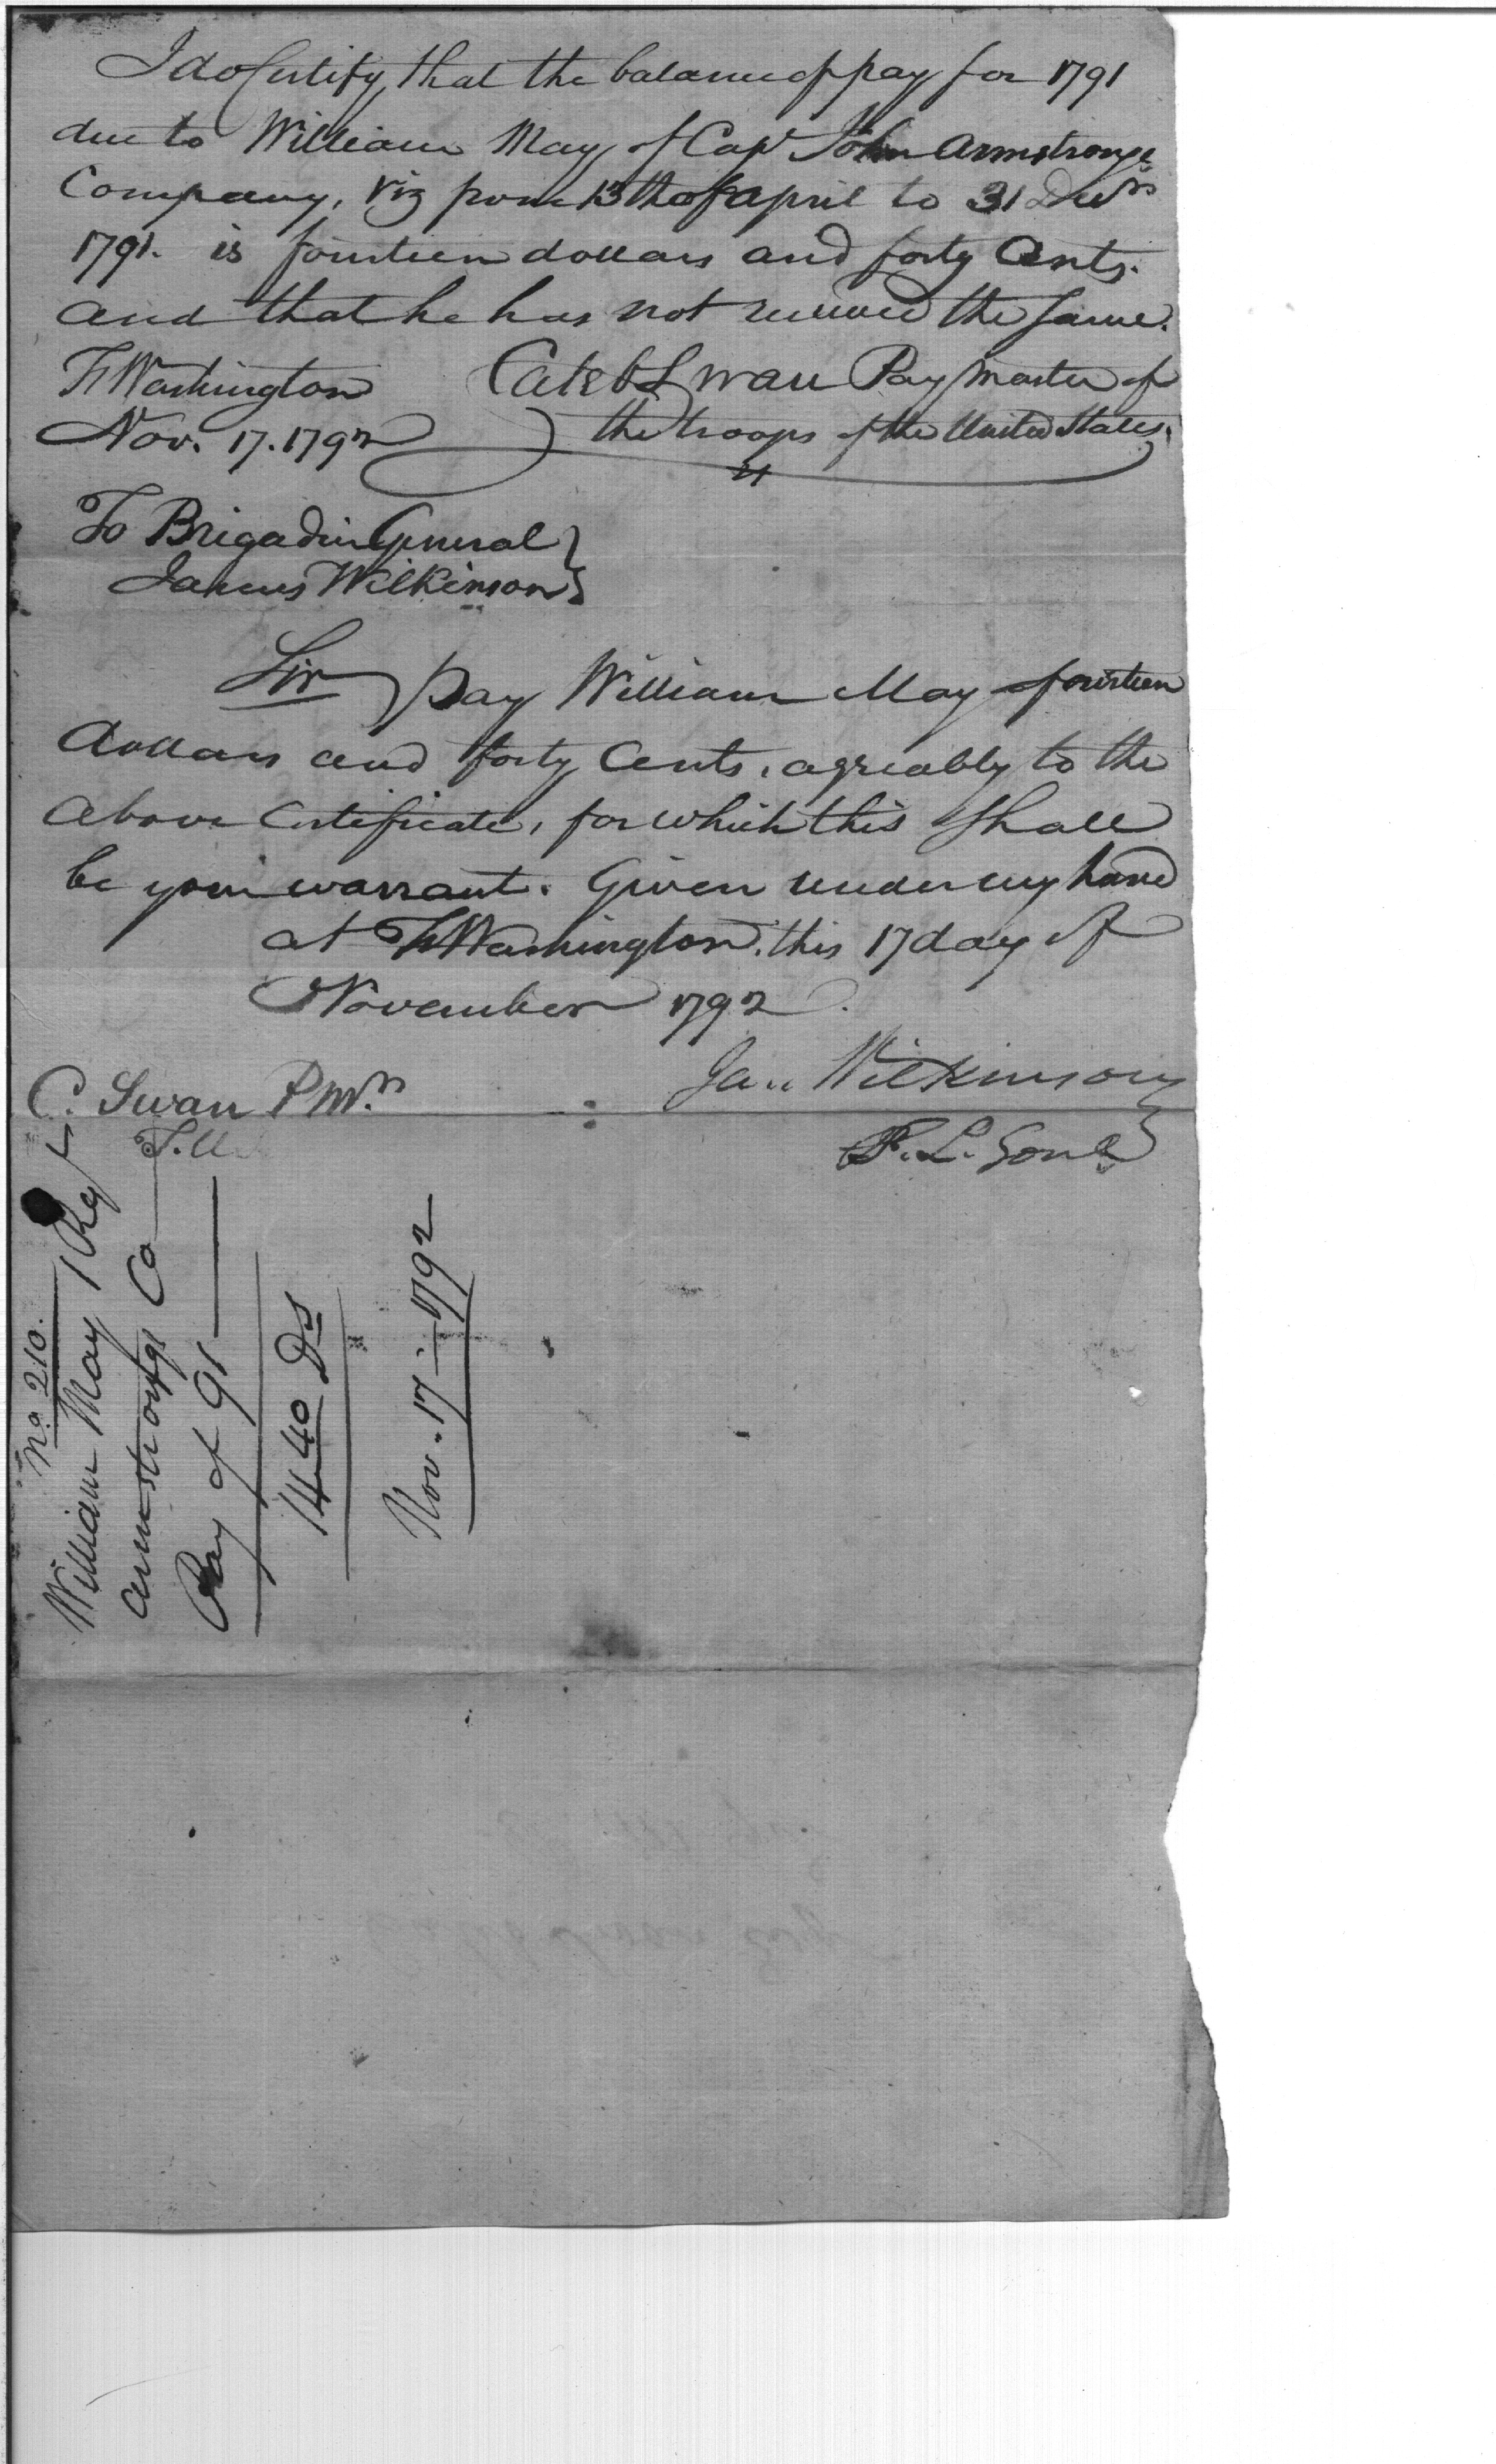 I do Certify, that the balance of pay for 1791
due to William May of Capt John Armstrongs
Company, viz from 13th of april to 31 Decr
1791. is fourteen dollars and forty Cents.
and that he has not received the same.
Ft Washington
Nov. 17. 1792
Caleb Swan Pay Master of
the troops of the United States.
To Brigadier General
James Wilkinson
Sir Pay William May fourteen
dollars and forty Cents, agreably to the
above Certificate, for which this shall
be your warrant. Given under my hand
at Ft Washington. this 17 day of
November 1792.
Ja.. Wilkinson
C. Swan P Mr.
T. U
No 210.
William May 1 Regt
armstrongs Co
Pay of 91
14 40 Ds
Nov. 17 - 1792